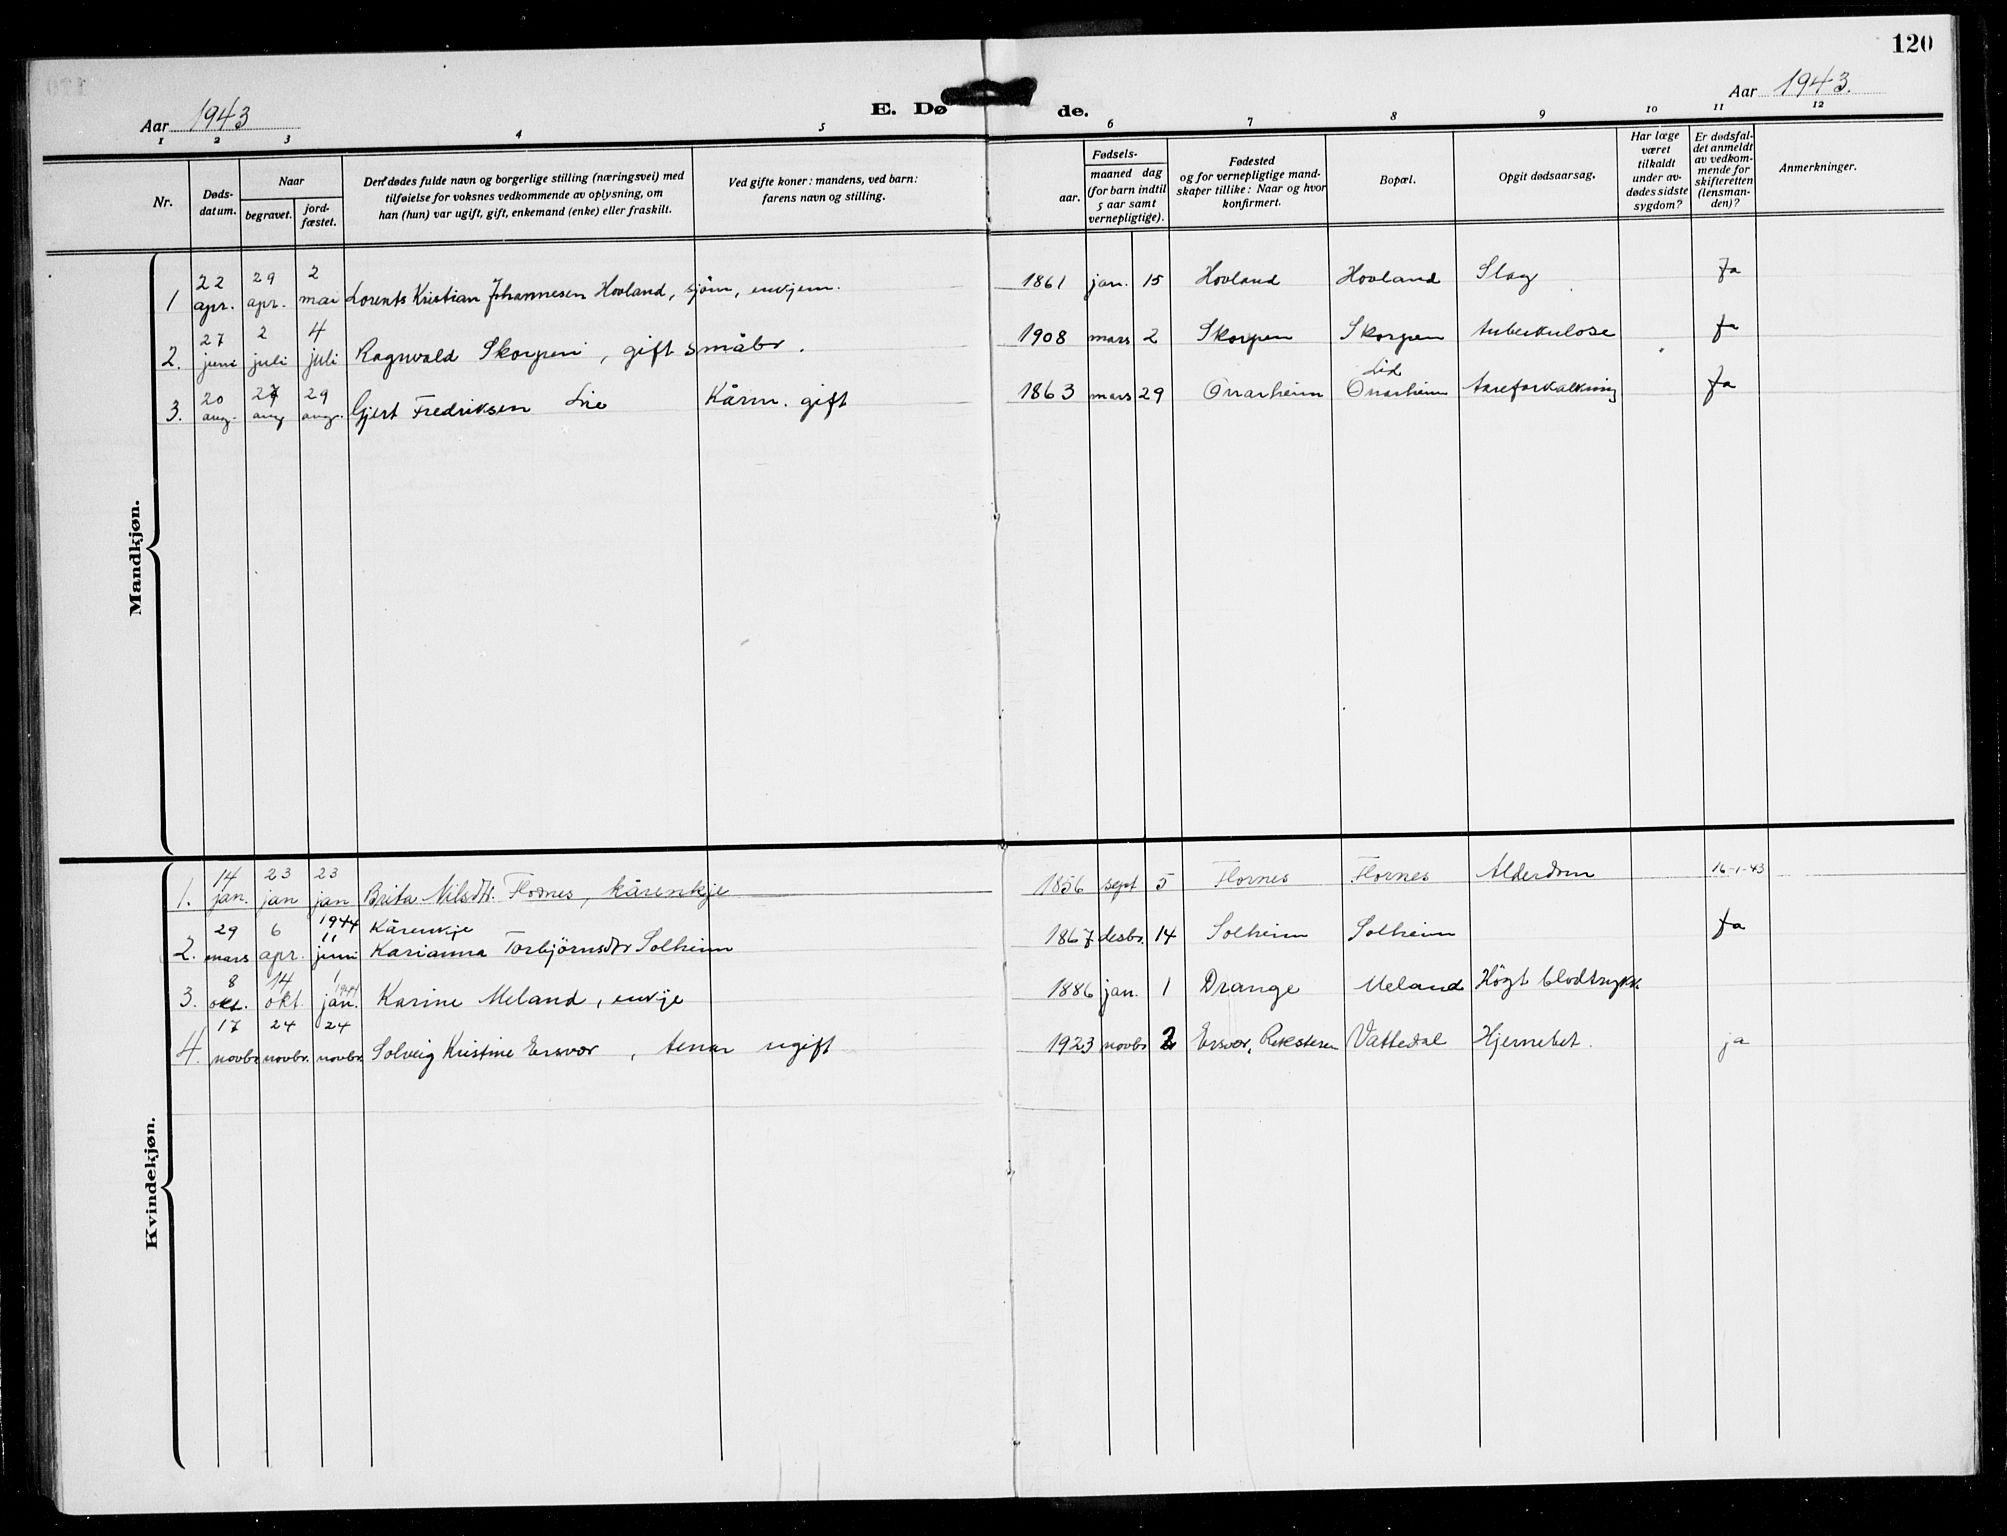 120
Aar 1943
E. Dø de.
Aar 1943.
1 2 3 4 5 6 7 8 9 10 11 12
Nr.
Døds-
datum.
Naar
begravet.
jord-
fæstet.
Den dødes fulde navn og borgerlige stilling (næringsvei) med
tilføielse for voksnes vedkommende av oplysning, om
han (hun) var ugift, gift, enkemand (enke) eller fraskilt.
Ved gifte koner: mandens, ved barn:
farens navn og stilling.
Fødsels-
aar.
maaned dag
(for barn indtil
5 aar samt
vernepligtige).
Fødested
og for vernepligtige mand-
skaper tillike: Naar og hvor
konfirmert.
Bopæl.
Opgit dødsaarsag.
Har læge
været
tilkaldt
under av-
dødes sidste
sygdom?
Er dødsfal-
det anmeldt
av vedkom-
mende for
skifteretten
(lensman-
den)?
Anmerkninger.
Mandkjøn.
22 29 2
1 apr. apr. mai Lorents Kristian Johannesen Hovland, sjøm, enkjem. 1861 jan. 15 Hovland Hovland Slag Ja
27 2 4
2. juni juli juli Ragnvald Skorpen, gift småbr. 1908 mars 2 Skorpen Skorpen tuberkulose Ja
20 27 29 Lid
3. aug. aug aug. Gjert Fredriksen Lie Kårm. gift 1863 mars 29 Onarheim Onarheim Aareforkalkning Ja
Kvindekjøn.
14 23 23
1. jan. jan jan Brita Nilsdtr. Flornes, kårenkje 1856 sept 5 Flornes Flornes Alderdom 16-1-43
29 6 1944 11 Kårenkje
2. mars apr. juni Karianna Torbjørnsdtr Solheim 1867 desbr. 14 Solheim Solheim Ja
8 14 1 1944
3. okt. okt. jan. Karine Meland, enkje 1886 jan. 1 Drange Meland Högt blodtrykk
17 24 24
4. novbr. novbr. novbr. Solveig Kristine Ersvær, tenar ugift 1923 novbr 2 Ersvær, Reksteren Vattedal Hjernebet. ja